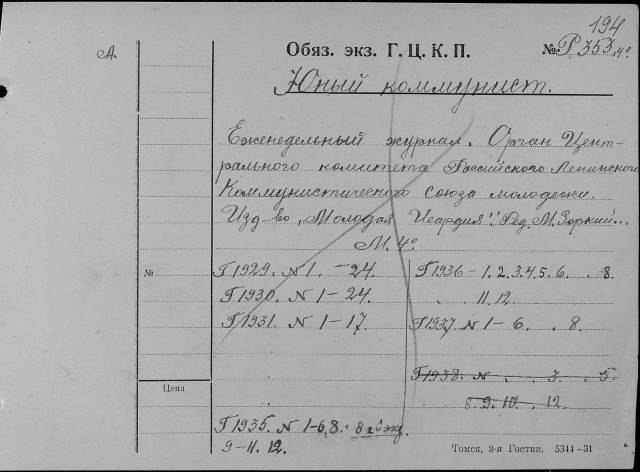 194
А
Обяз. экз. Г. Ц. К. П. № Р353 4º
Юный коммунист.
Еженедельный журнал. Орган Цент-
рального комитета Российского Ленинского
Коммунистического союза молодежи.
Изд-во „Молодая Гвардия". Ред. М. Зоркий...
М. 4º
№
Г1929. N 1. – 24.
Г1930. N 1 – 24.
Г1931. N 1 – 17.
Г1936 – 1. 2. 3. 4. 5. 6. . 8
. . 11. 12.
Г1937. N 1 – 6. . 8.
Г1938. N . . 3. . 5.
8. 9. 10. . 12.
Цена
Г1935. N 1-6, 8. + 8 2й экз.
9-11. 12.
Томск, 3-я Гостип. 5344 - 31